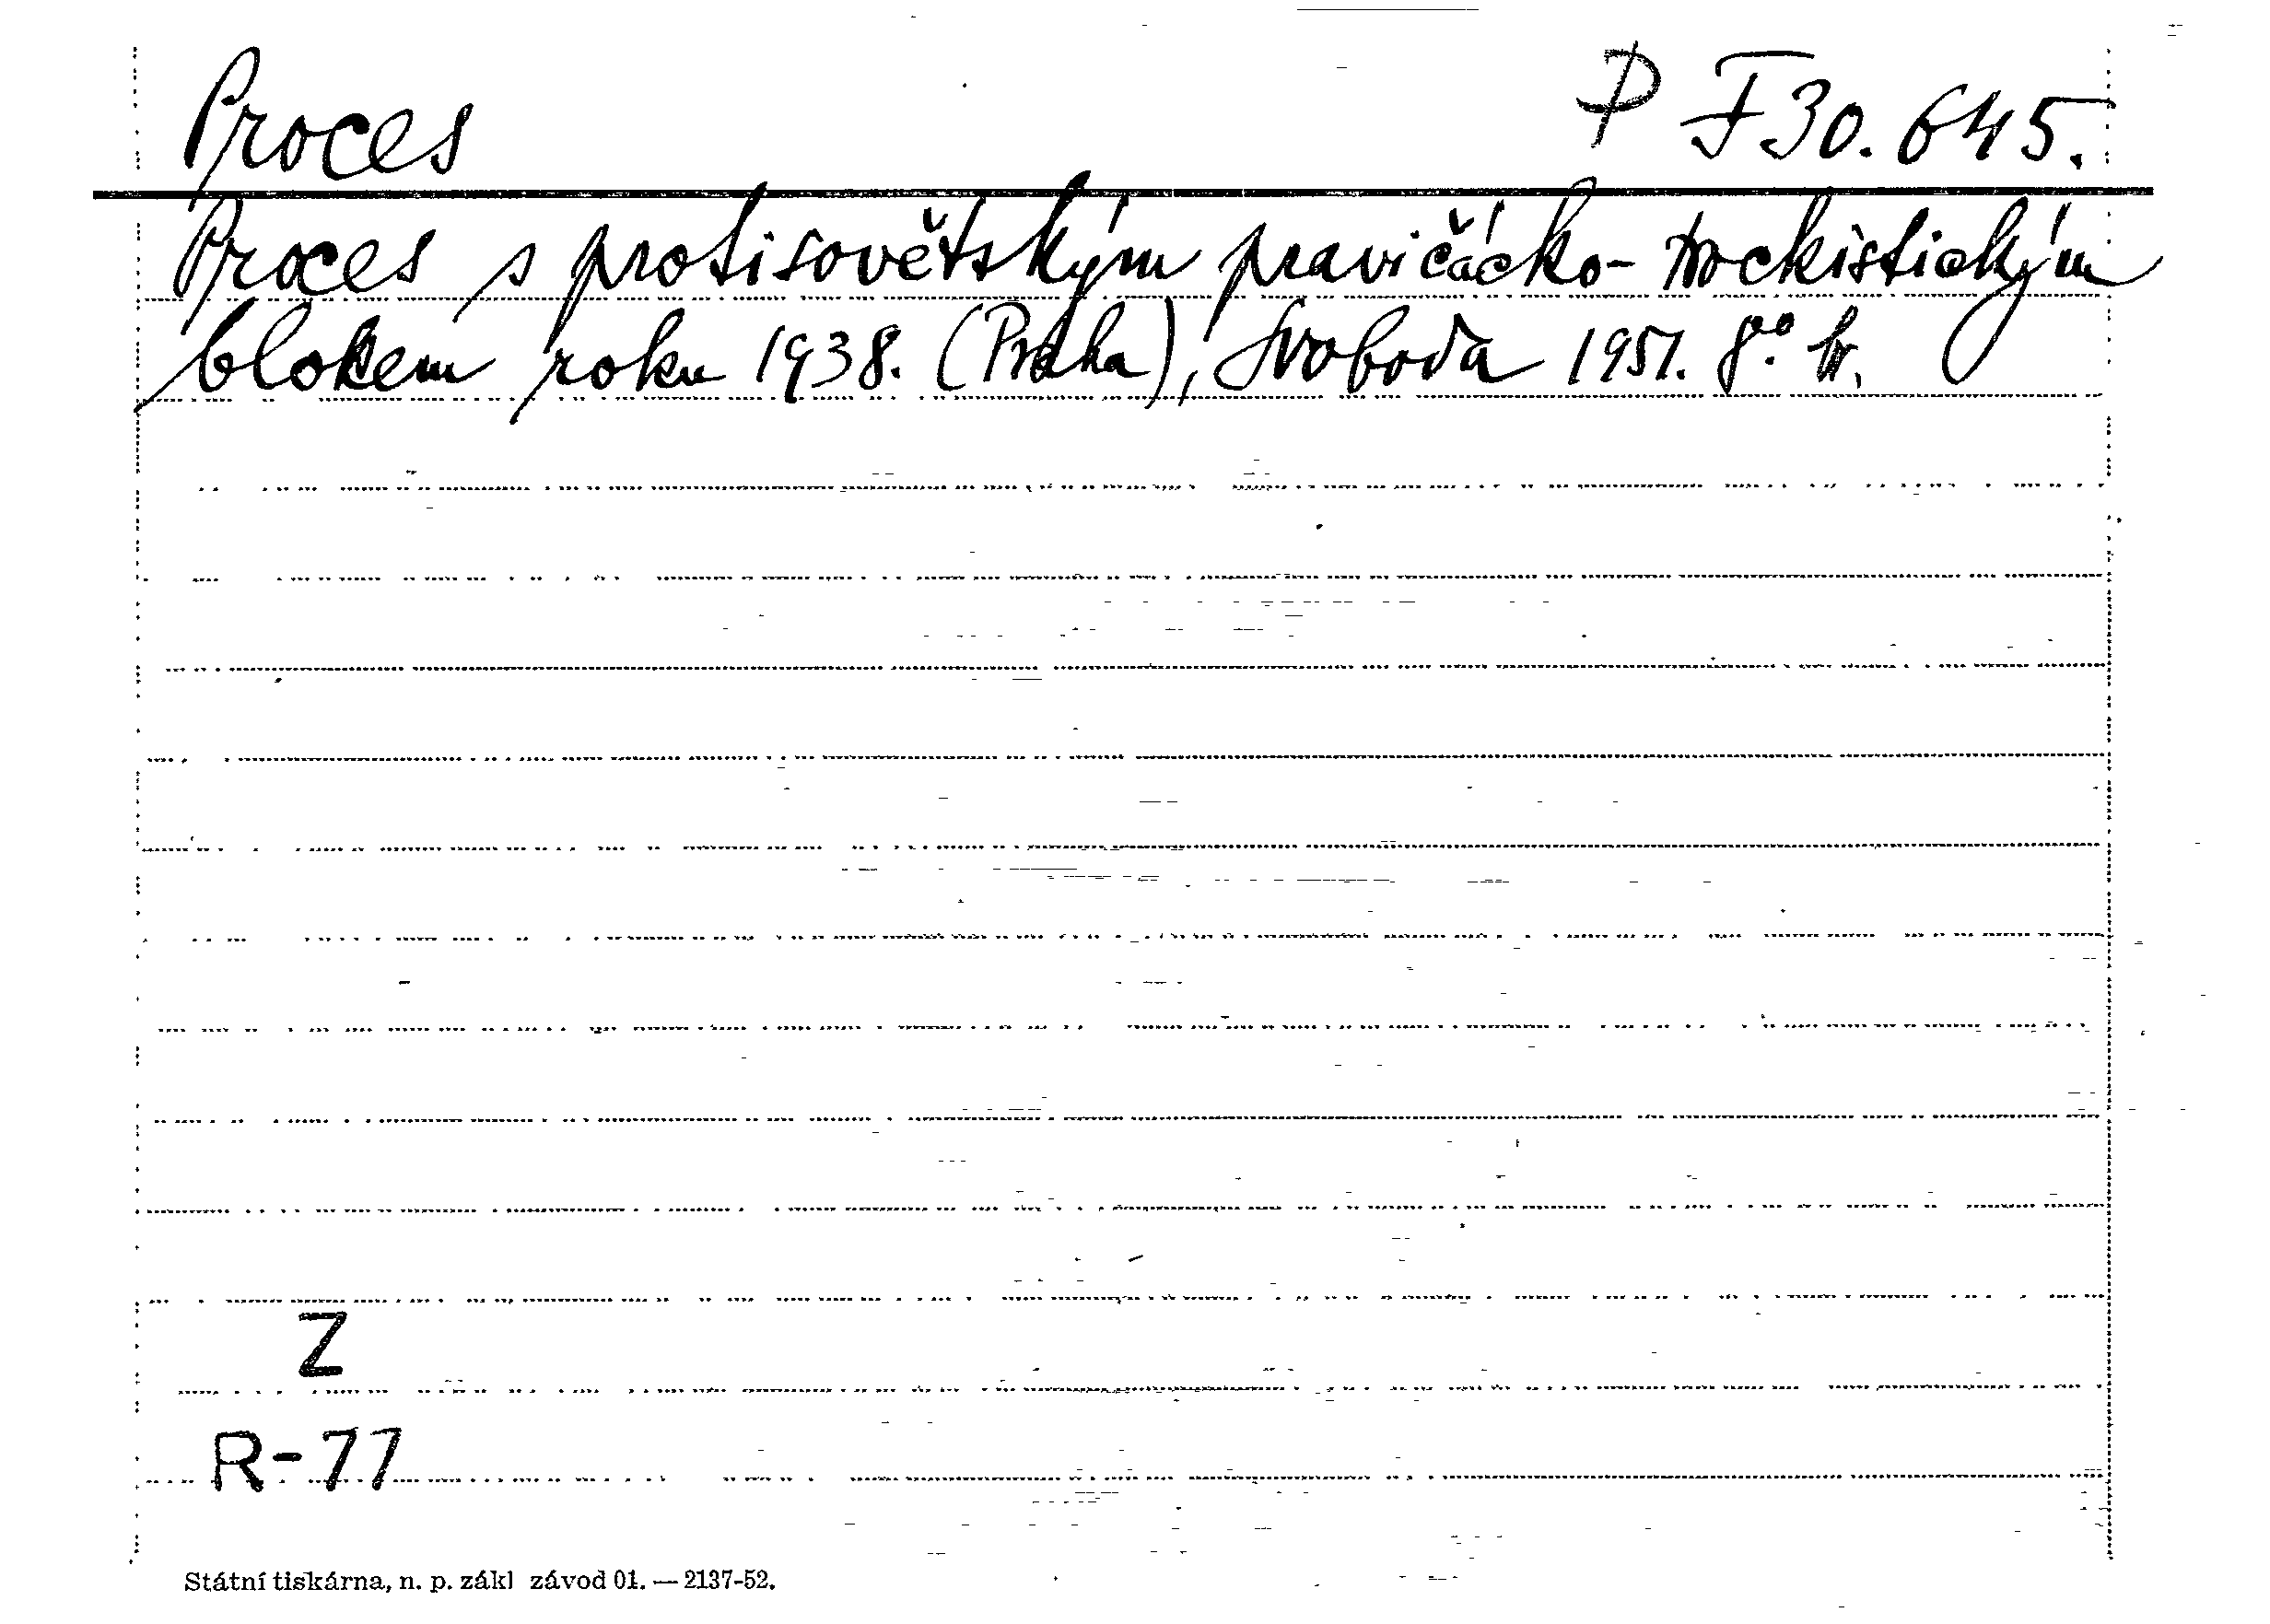 Proces P F 30.645.
Proces s protisovětským pravičácko-trockistickým
blokem roku 1938. (Praha), Svoboda 1951. 8.° br.
Z
R-77
Státní tiskárna, n. p. zákl závod 01. — 2137-52.